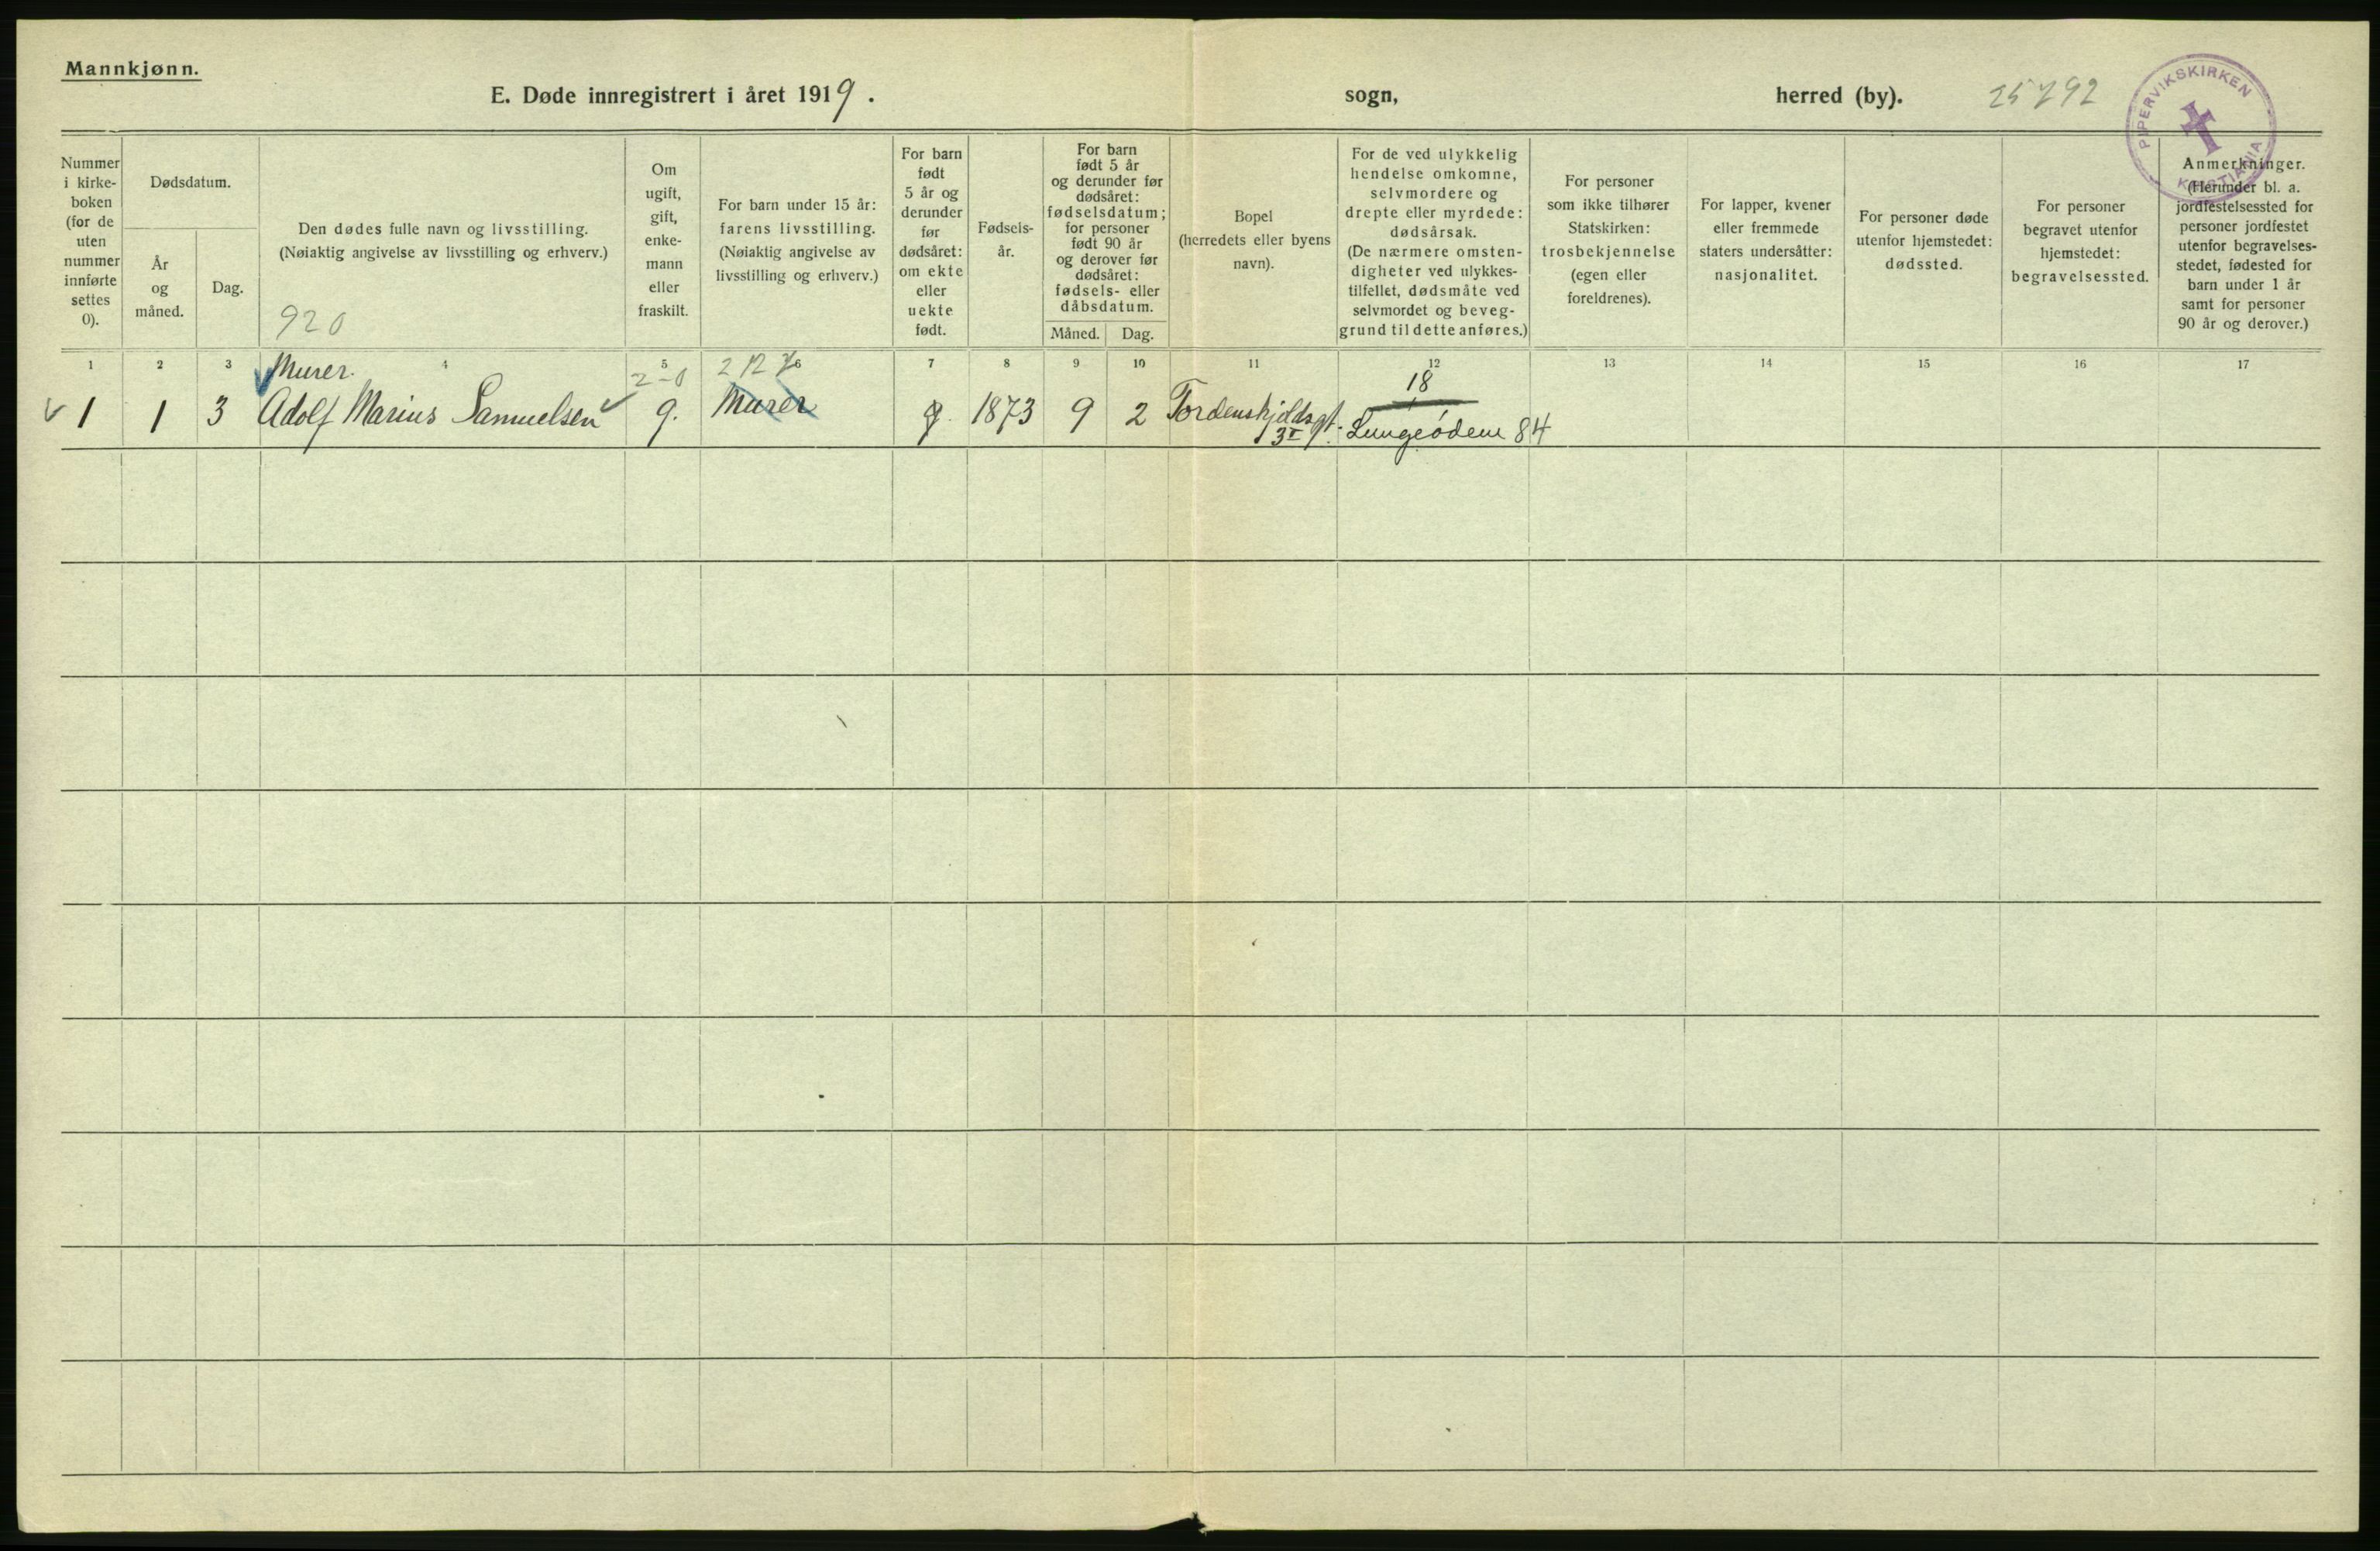 Mannkjønn.
E. Døde innregistrert i året 1919. sogn, herred (by). 25792
PIPERVIKSKIRKEN
KRISTIANIA
Nummer
i kirke-
boken
(for de
uten
nummer
innførte
settes
0).
Dødsdatum.
År
og
måned.
Dag.
Den dødes fulle navn og livsstilling.
(Nøiaktig angivelse av livsstilling og erhverv.)
920
Om
ugift,
gift,
enke-
mann
eller
fraskilt.
For barn under 15 år:
farens livsstilling.
(Nøiaktig angivelse av
livsstilling og erhverv.)
For barn
født
5 år og
derunder
før
dødsåret:
om ekte
eller
uekte
født.
Fødsels-
år.
For barn
født 5 år
og derunder før
dødsåret:
fødselsdatum;
for personer
født 90 år
og derover før
dødsåret:
fødsels- eller
dåbsdatum.
Måned. Dag.
Bopel
(herredets eller byens
navn).
For de ved ulykkelig
hendelse omkomne,
selvmordere og
drepte eller myrdede:
dødsårsak.
(De nærmere omsten-
digheter ved ulykkes-
tilfellet, dødsmåte ved
selvmordet og beveg-
grund til dette anføres.)
For personer
som ikke tilhører
Statskirken:
trosbekjennelse
(egen eller
foreldrenes).
For lapper, kvener
eller fremmede
staters undersåtter:
nasjonalitet.
For personer døde
utenfor hjemstedet:
dødssted.
For personer
begravet utenfor
hjemstedet:
begravelsessted.
Anmerkninger.
(Herunder bl. a.
jordfestelsessted for
personer jordfestet
utenfor begravelses-
stedet, fødested for
barn under 1 år
samt for personer
90 år og derover.)
1 2 3 4 5 6 7 8 9 10 11 12 13 14 15 16 17
Murer. 2-0 18
1 1 3 Adolf Marius Samuelsen g. Murer g. 1873 9 2 Tordenskjoldsgt.
3 I Lungeødem 84